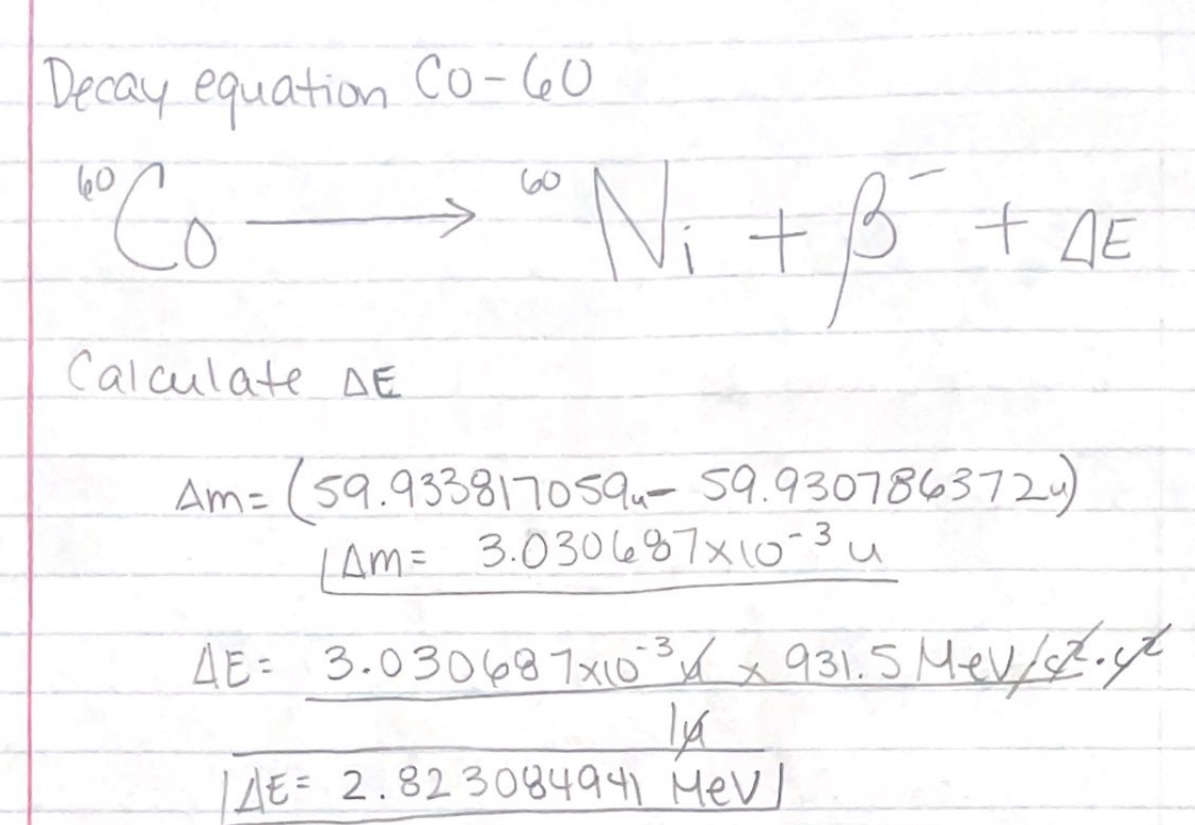 Decay equation Co-60
⁶⁰Co → ⁶⁰Ni + β⁻ + ΔE
Calculate ΔE
Δm = (59.933817059u - 59.930786372u)
Δm = 3.030687×10⁻³ u
ΔE = 3.030687×10⁻³ u × 931.5 MeV/c² · c²
1u
ΔE = 2.823084941 MeV